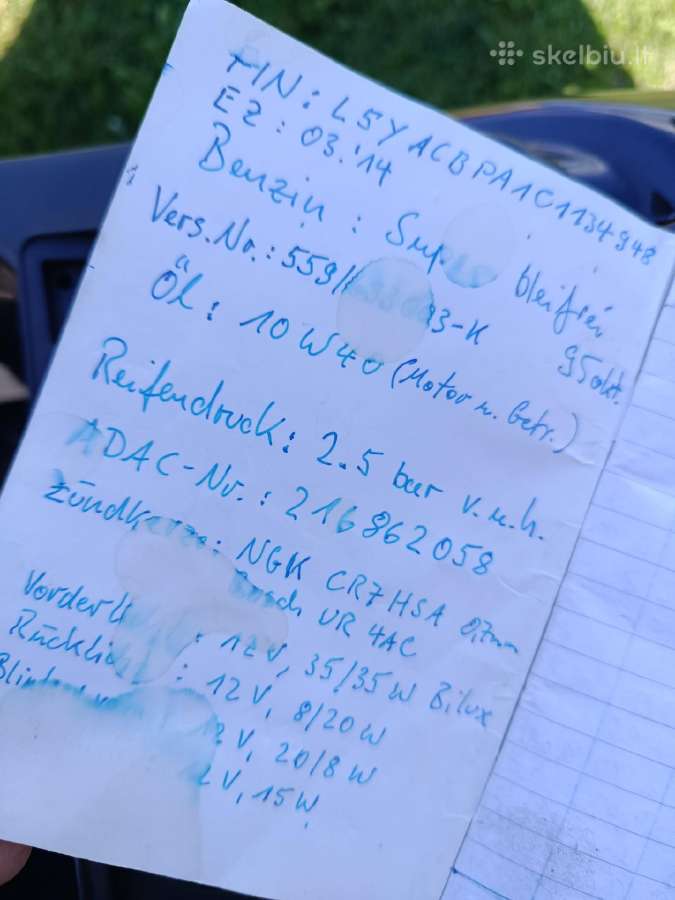 skelbiu.lt
FIN: L5YACBPA1C1134948
EZ: 03.'14
Benzin: Super bleifrei 95okt.
Vers.Nr.: 559/ 93-K
Öl: 10W40 (Motor u. Getr.)
Reifendruck: 2.5 bar v.u.h.
ADAC-Nr.: 216862058
Zündkerze: NGK CR7HSA 0,7mm
Bosch UR 4AC
: 12V, 35/35W Bilux
Rücklicht: 12V, 8/20W
12V, 20/8W
12V, 15W